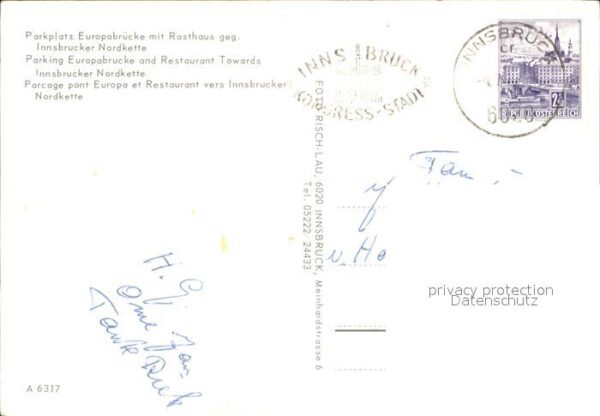 Parkplatz Europabrücke mit Rasthaus geg.
Innsbrucker Nordkette
Parking Europabrucke and Restaurant Towards
Innsbrucker Nordkette
Parcage pont Europa et Restaurant vers Innsbrucker
Nordkette
INNSBRUCK
KONGRESS-STADT
INNSBRUCK
6020
2
REPUBLIK ÖSTERREICH
FOTO RISCH-LAU, 6020 INNSBRUCK, Meinhardstrasse 6
Tel. 05222 24433
Fam
u. Ha
H. G.
Tante
privacy protection
Datenschutz
A 6317